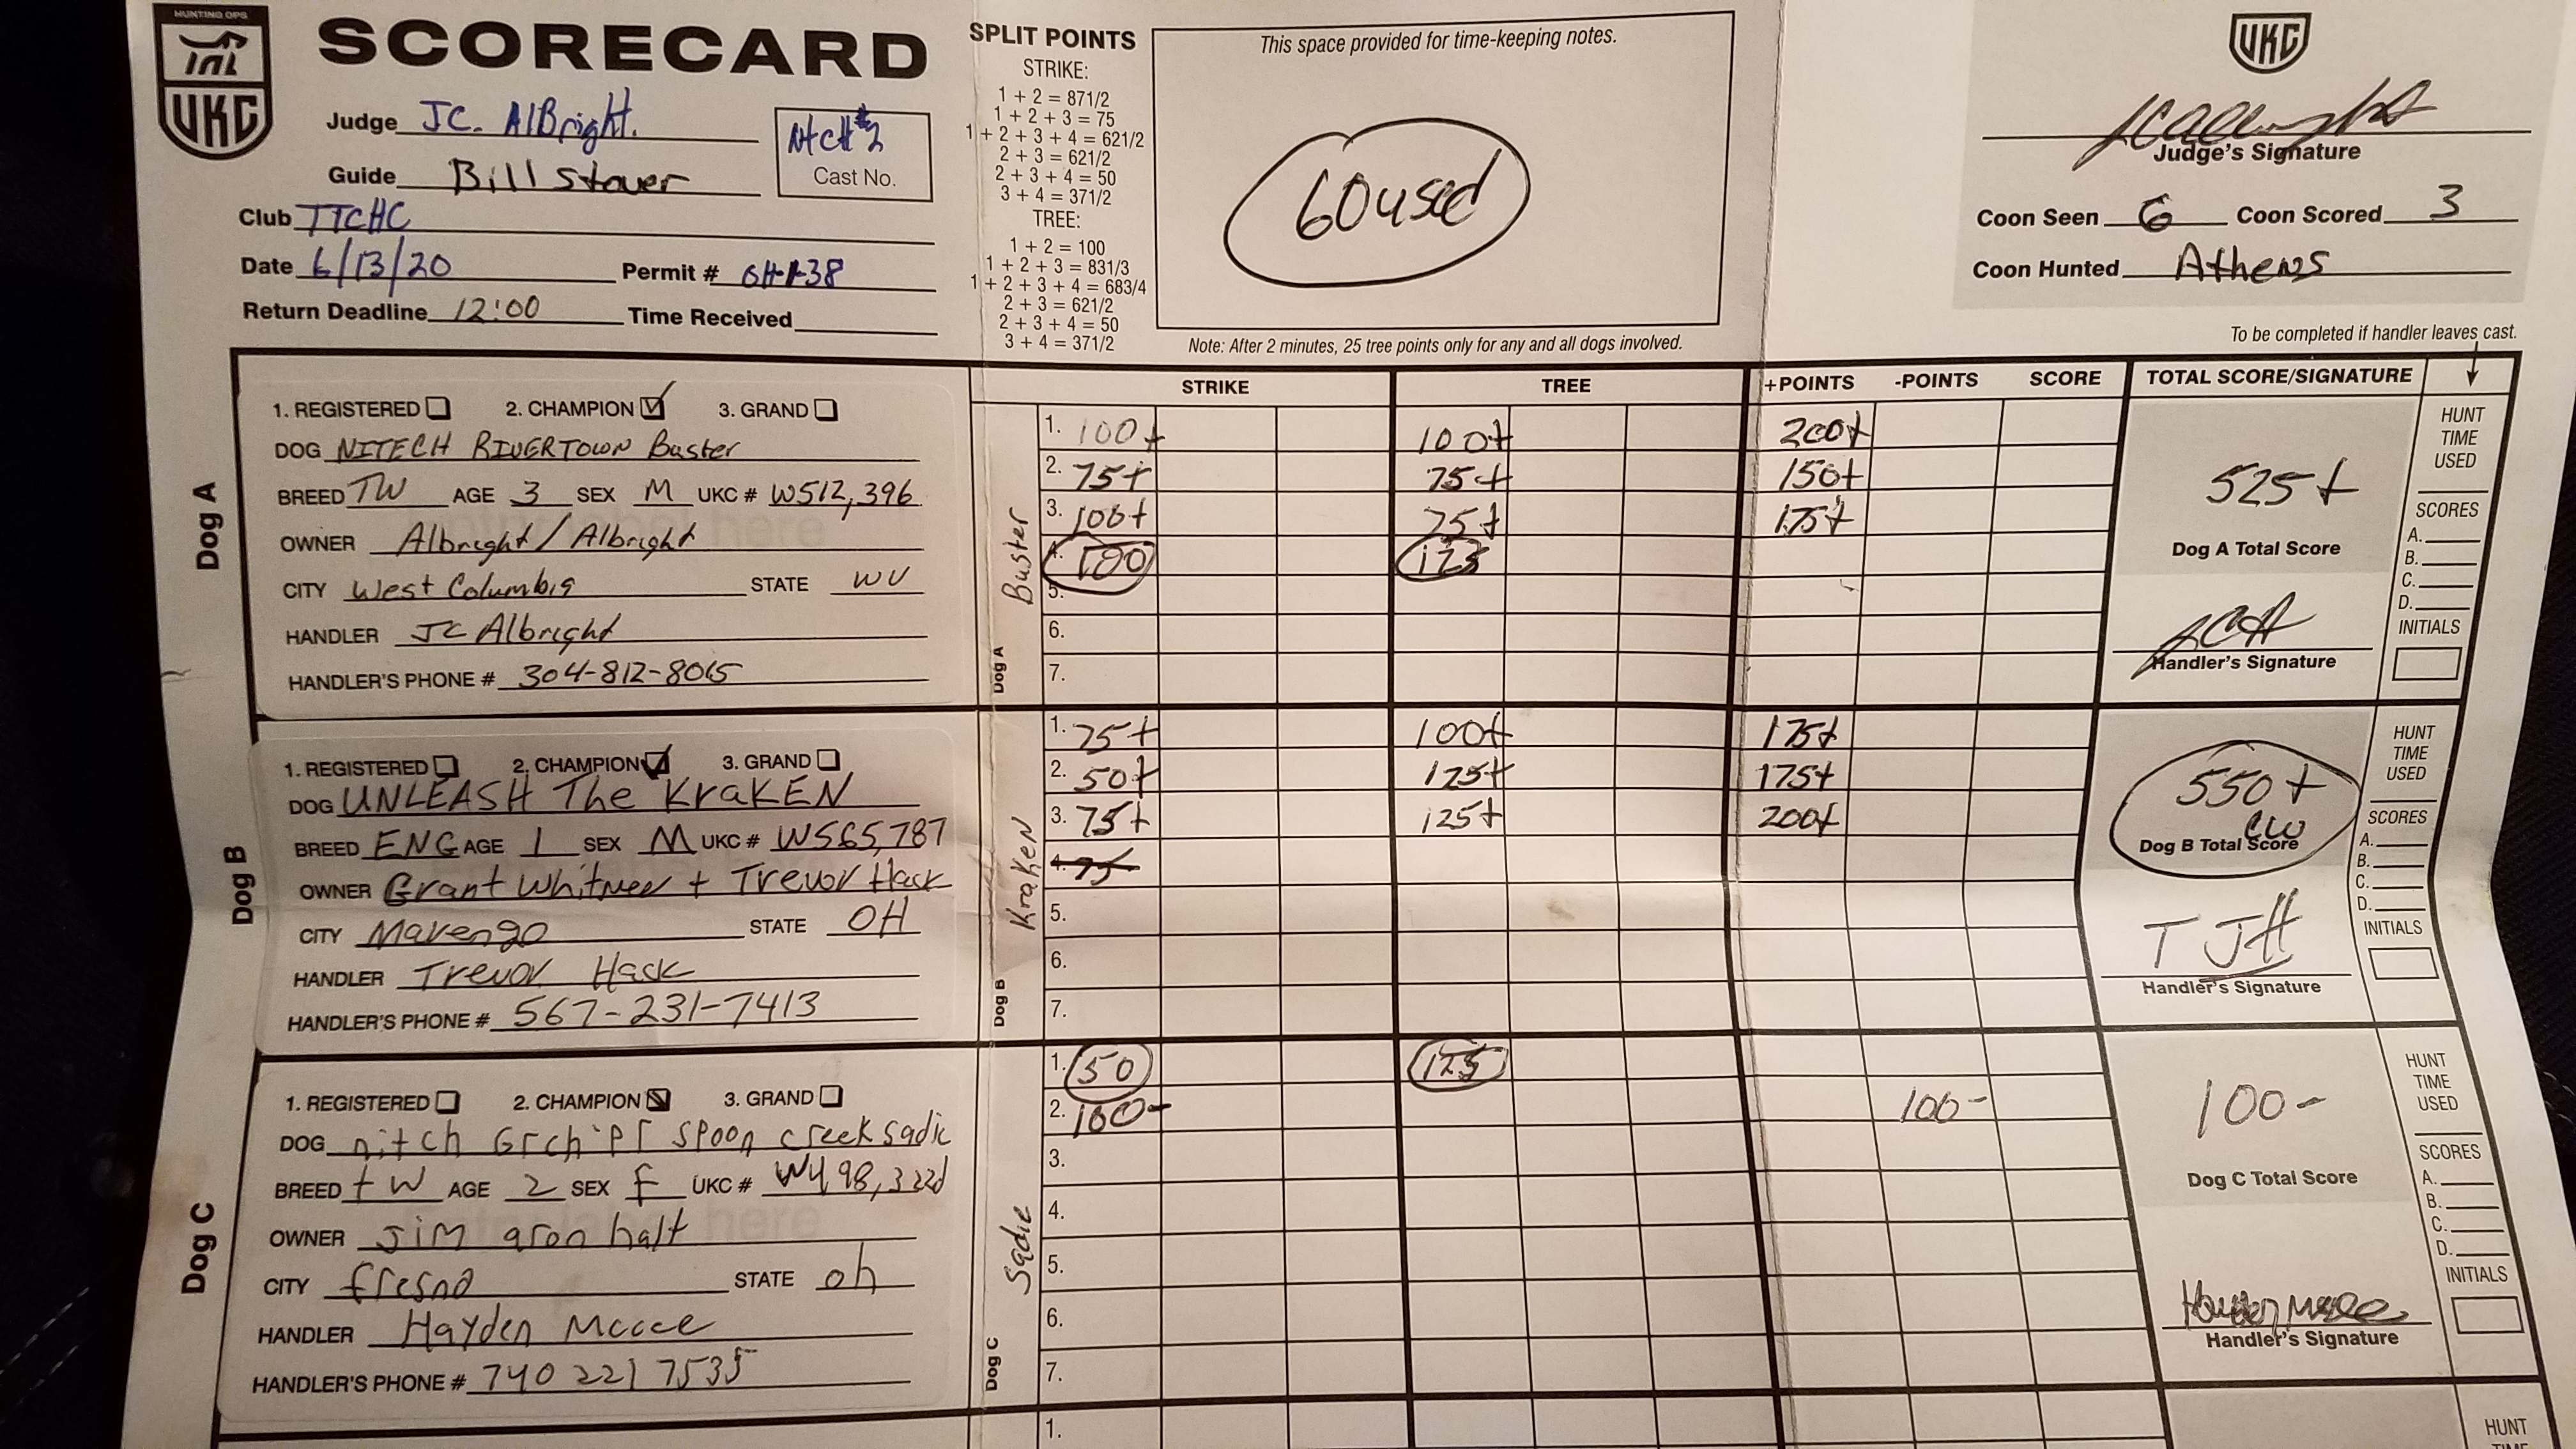 HUNTING OPS
UKC
SCORECARD
Judge JC. AlBright.
Guide Bill Stover
NtCH#2
Cast No.
Club TTCHC
Date 6/13/20 Permit # OH-138
Return Deadline 12:00 Time Received
SPLIT POINTS
STRIKE:
1 + 2 = 871/2
1 + 2 + 3 = 75
1 + 2 + 3 + 4 = 621/2
2 + 3 = 621/2
2 + 3 + 4 = 50
3 + 4 = 371/2
TREE:
1 + 2 = 100
1 + 2 + 3 = 831/3
1 + 2 + 3 + 4 = 683/4
2 + 3 = 621/2
2 + 3 + 4 = 50
3 + 4 = 371/2
This space provided for time-keeping notes.
60 used
Note: After 2 minutes, 25 tree points only for any and all dogs involved.
UKC
Judge's Signature
Coon Seen 6 Coon Scored 3
Coon Hunted Athens
To be completed if handler leaves cast.
STRIKE TREE +POINTS -POINTS SCORE TOTAL SCORE/SIGNATURE
Dog A
1. REGISTERED 2. CHAMPION 3. GRAND
DOG NITECH RIVERTOWN Buster
BREED TW AGE 3 SEX M UKC # W512,396
OWNER Albright / Albright
CITY West Columbia STATE WV
HANDLER JC Albright
HANDLER'S PHONE # 304-812-8065
Dog A Buster
1. 100+ 100+ 200+
2. 75+ 75+ 150+
3. 100+ 75+ 175+
4. 100 125
5.
6.
7.
525+
Dog A Total Score
JCA
Handler's Signature
HUNT
TIME
USED
SCORES
A.
B.
C.
D.
INITIALS
Dog B
1. REGISTERED 2. CHAMPION 3. GRAND
DOG UNLEASH The KraKEN
BREED ENG AGE 1 SEX M UKC # W565,787
OWNER Grant Whitmer + Trevor Hack
CITY Marengo STATE OH
HANDLER Trevor Hack
HANDLER'S PHONE # 567-231-7413
Dog B Kraken
1. 75+ 100+ 175+
2. 50+ 125+ 175+
3. 75+ 125+ 200+
4. 75
5.
6.
7.
550+
CW
Dog B Total Score
TJH
Handler's Signature
HUNT
TIME
USED
SCORES
A.
B.
C.
D.
INITIALS
Dog C
1. REGISTERED 2. CHAMPION 3. GRAND
DOG nitch Grch'pr Spoon creek sadie
BREED tw AGE 2 SEX f UKC #
OWNER Jim aron halt
CITY fresno STATE oh
HANDLER Hayden Mccoe
HANDLER'S PHONE # 740 221 7535
Dog C Sadie
1. 50 125
2. 100- 100-
3.
4.
5.
6.
7.
100-
Dog C Total Score
Handler's Signature
HUNT
TIME
USED
SCORES
A.
B.
C.
D.
INITIALS
1.
HUNT